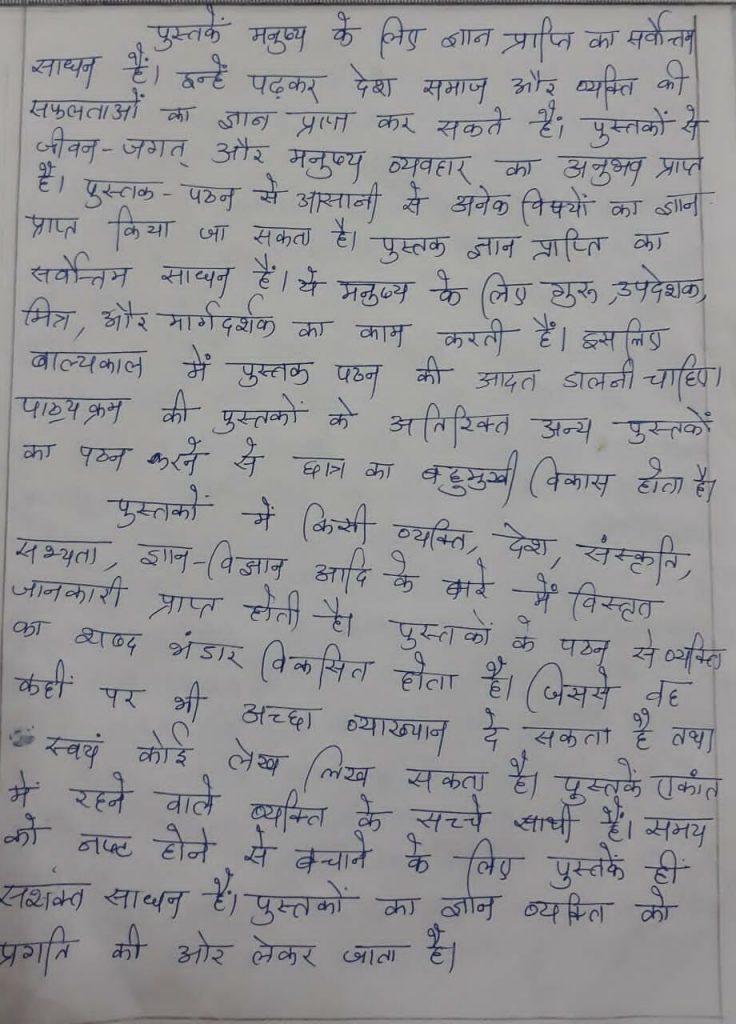 पुस्तकें मनुष्य के लिए ज्ञान प्राप्ति का सर्वोत्तम
साधन हैं। इन्हें पढ़कर देश समाज और व्यक्ति की
सफलताओं का ज्ञान प्राप्त कर सकते हैं। पुस्तकों से
जीवन-जगत् और मनुष्य व्यवहार का अनुभव प्राप्त
है। पुस्तक-पठन से आसानी से अनेक विषयों का ज्ञान
प्राप्त किया जा सकता है। पुस्तक ज्ञान प्राप्ति का
सर्वोत्तम साधन हैं। ये मनुष्य के लिए गुरू, उपदेशक,
मित्र, और मार्गदर्शक का काम करती हैं। इसलिए
बाल्यकाल में पुस्तक पठन की आदत डालनी चाहिए।
पाठ्यक्रम की पुस्तकों के अतिरिक्त अन्य पुस्तकों
का पठन करने से छात्र का बहुमुखी विकास होता है।
पुस्तकों में किसी व्यक्ति, देश, संस्कृति,
सभ्यता, ज्ञान-विज्ञान आदि के बारे में विस्तृत
जानकारी प्राप्त होती है। पुस्तकों के पठन से व्यक्ति
का शब्द भंडार विकसित होता है। जिससे वह
कहीं पर भी अच्छा व्याख्यान दे सकता है तथा
स्वयं कोई लेख लिख सकता है। पुस्तकें एकांत
में रहने वाले व्यक्ति के सच्चे साथी हैं। समय
को नष्ट होने से बचाने के लिए पुस्तकें ही
सशक्त साधन हैं। पुस्तकों का ज्ञान व्यक्ति को
प्रगति की ओर लेकर जाता है।